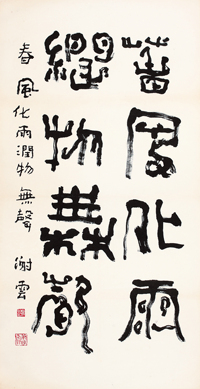 春風化雨
潤物無聲
春風化雨潤物無聲
謝雲